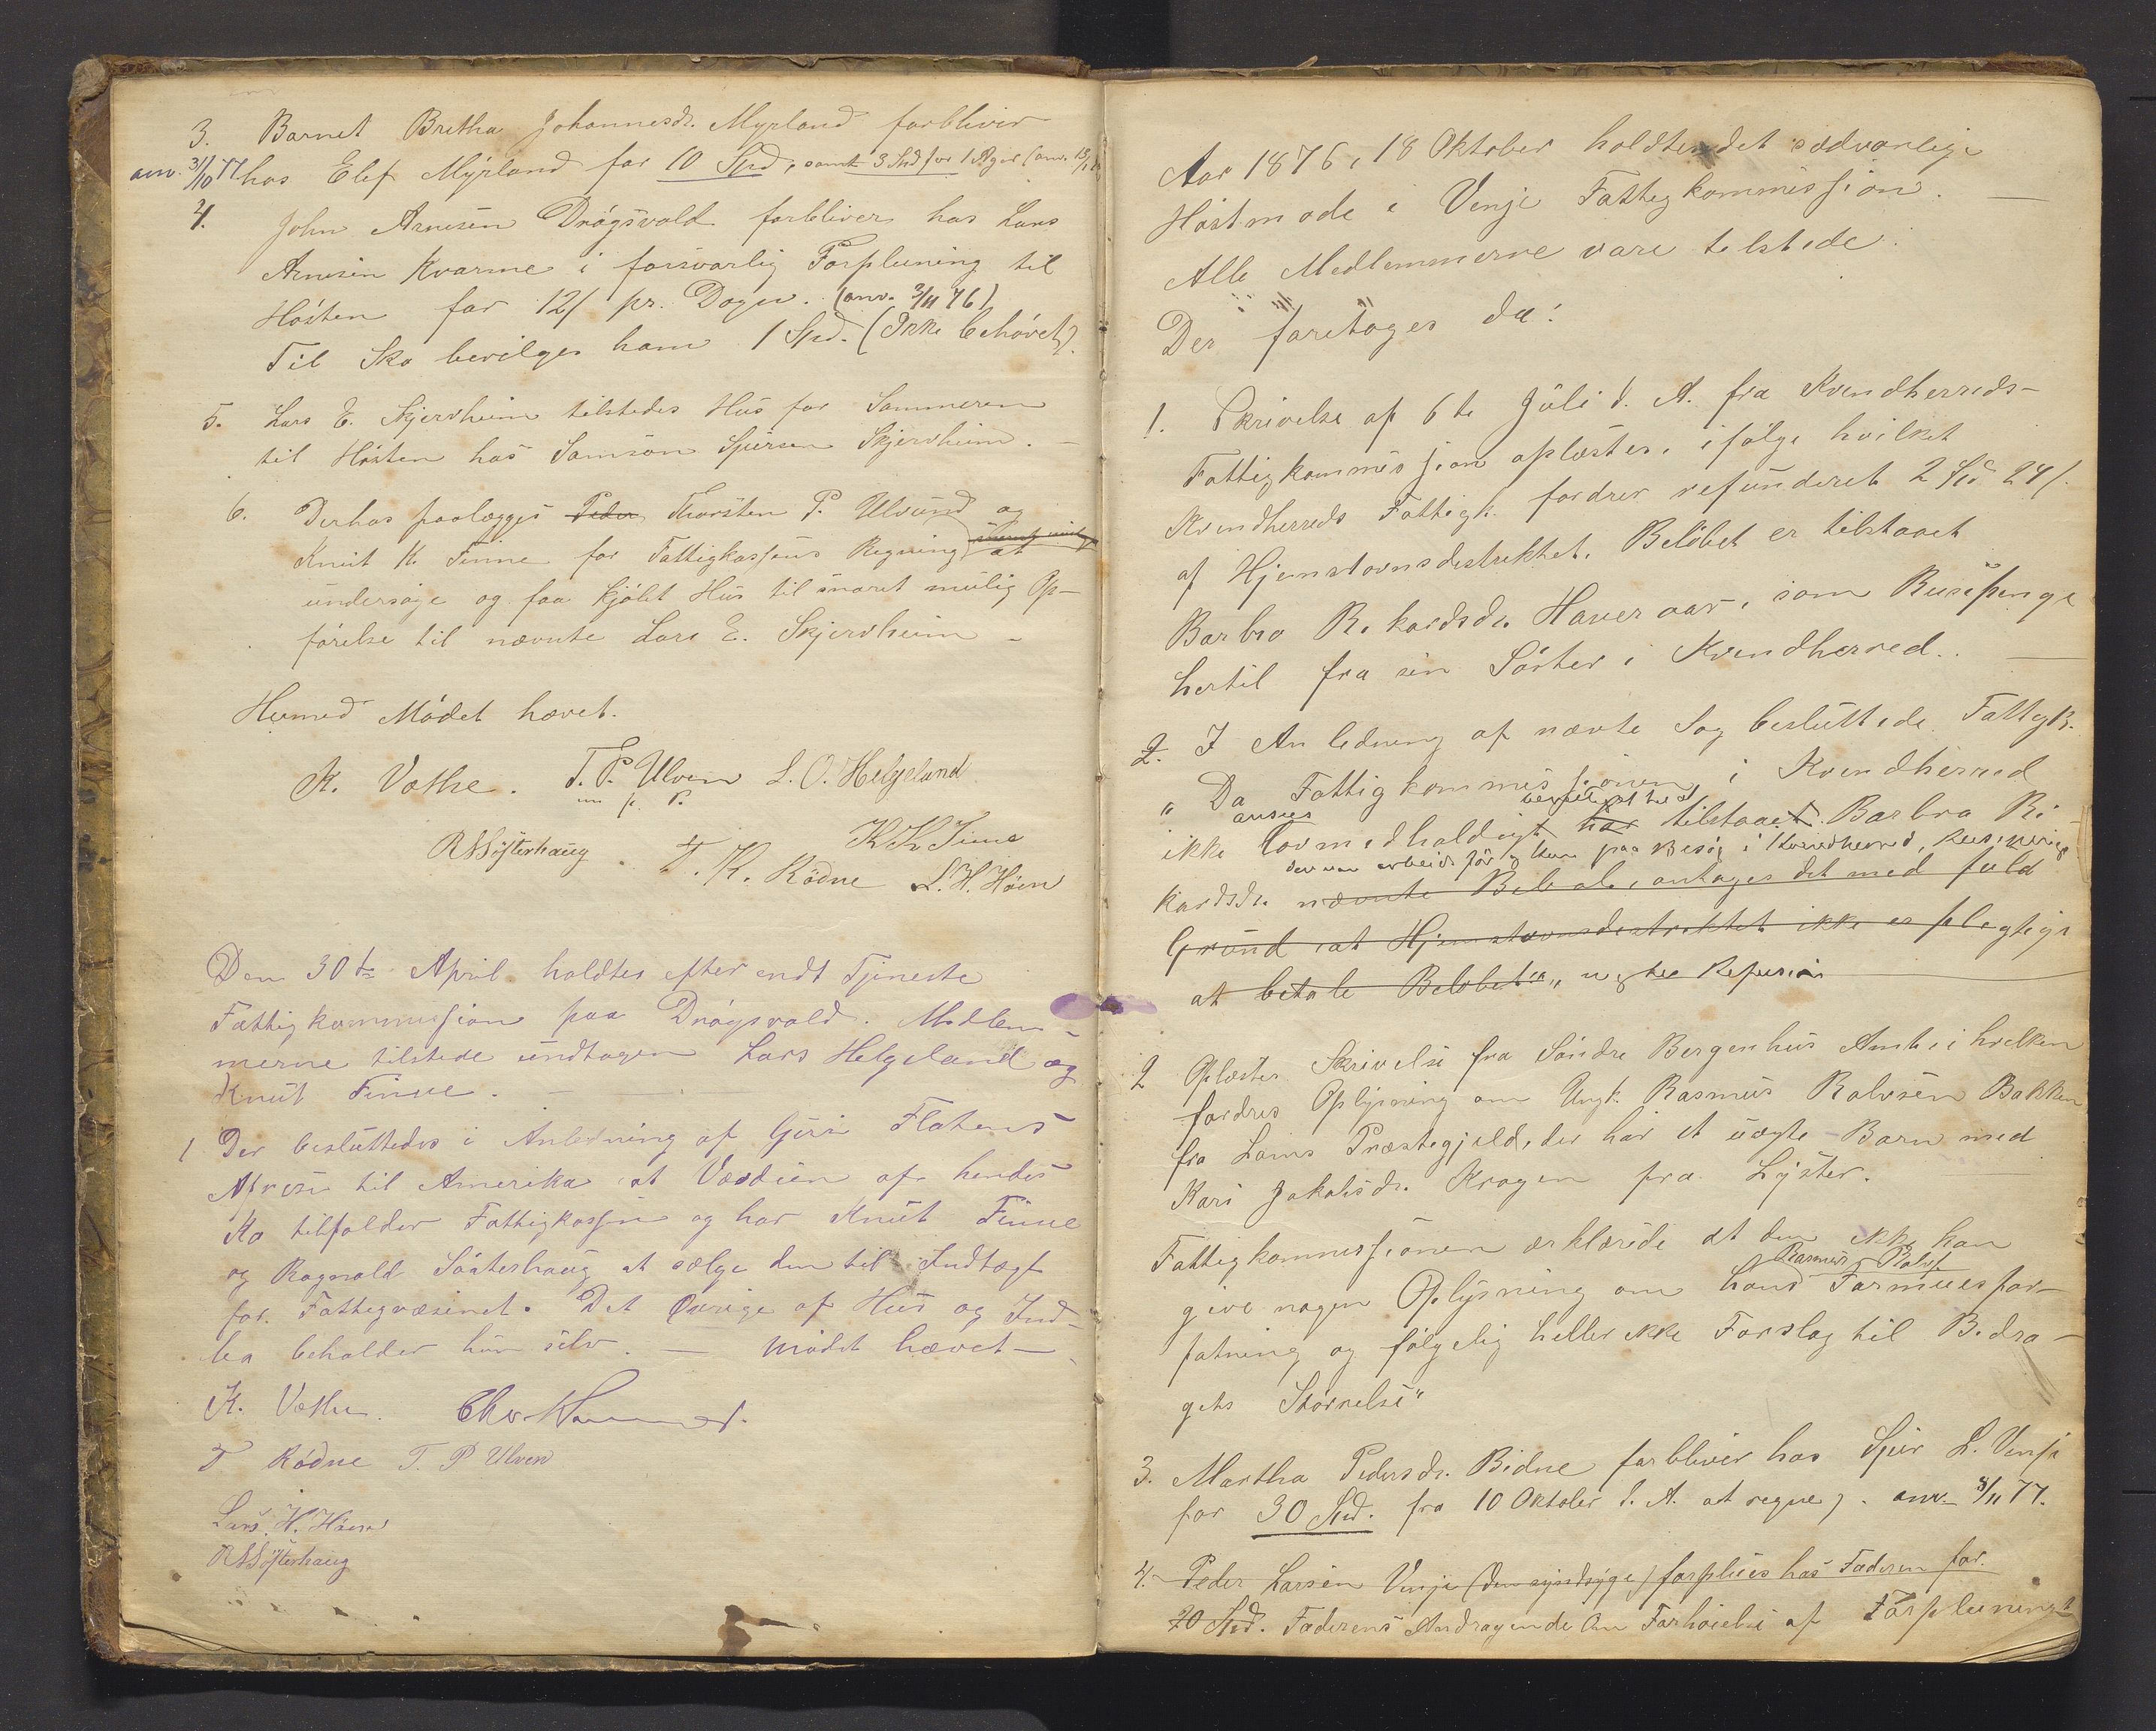 3. Barnet Bretha Johannesdr. Myrland forbliver
anv. 31/10 77 hos Elef Myrland for 10 Spd, samt 3 Spd for 1 Ager (anv.
4. John Arnesen Drøgsvold forbliver hos Lars
Arnesen Kvarme i forsvarlig Forpleining til
Høsten for 12 s pr. Døgn. (anv. 3/11 76)
Til Sko bevilges ham 1 Spd. (Ikke behøvet).
5. Lars E. Skjervheim tilstedes Hus for Sommeren
til Høsten hos Samson Sjursen Skjervheim. —
6. Derhos paalægges Peder Thorsten P. Ulvund og
Knut K. Finne for Fattigkassens Regning at
undersøge og faa kjøbt Hus til snarest mulig Op-
førelse til nævnte Lars E. Skjervheim –
Hermed Mødet hævet.
K. Vethe. T. P. Ulven L. O. Helgeland
m p. P.
RNSøfterhaug. T. K. Rödne K K Finne
L. H. Höen
Den 30te April holdtes efter endt Tjeneste
Fattigkommission paa Drøgsvold. Medlem-
merne tilstede undtagen Lars Helgeland og
Knut Finne. —
1 Der besluttedes i Anledning af Guri Flatens
Afreise til Amerika at Værdien af hendes
Ko tilfalder Fattigkassen og har Knut Finne
og Ragnald Sáaterhaug at sælge den til Indtægt
for Fattigvæsenet. Det Øvrige af Hus og Ind-
bo beholder hun selv. — Mødet hævet —
K. Vethe.
T Rödne T. P Ulven
Lars. H. Höen
RNSøfterhaug
Aar 1876, 18 Oktober holdtes det sedvanlige
Høstmøde i Vinje Fattigkommission. —
Alle Medlemmerne vare tilstede.
Der foretoges da:
1. Skrivelse af 6te Juli d. A. fra Kvindherreds-
Fattigkommission oplæstes, ifølge hvilket
Kvindherreds Fattigk. fordrer refunderet 2 Spd 24 s.
af Hjemstavnsdistriktet. Beløbet er tilstaaet
Barbro Rikardsdr. Haveraas, som Reisepenge
hertil fra sin Søster i Kvindherred. —
2. I Anledning af nævnte Sag besluttede Fattigk.
" Da Fattigkommissionen i Kvindherred
ansees
ikke lovmedholdigt har tilstaaet Barbro Ri-
der var arbeidsfør og kun paa Besøg i Kvindherred, Reisepenge
kardsdr. nævnte Beløb, antages det med fuld
Grund, at Hjemstavnsdistriktet ikke er pligtige
at betale Beløbet", negtes Refusion
2 Oplæstes Skrivelse fra Søndre Bergenhus Amt, i hvilken
fordres Oplysning om Ungk. Rasmus Rolvsen Bakken
fra Loms Præstegjeld, der har et uægte Barn med
Kari Jakobsdr. Kragen fra Lyster.
Fattigkommissionen erklærede at den ikke kan
Rasmus Rolvs
give nogen Oplysning om hans Formuesfor-
fatning og følgelig heller ikke Forslag til Bidra-
gets Størrelse"
3. Martha Pedersdr. Bidne forbliver hos Sjur L. Vinje
for 30 Spd. fra 10 Oktober d. A. at regne). anv. 8/11 77.
4. Peder Larsen Vinje (den sindsyge) forpleies hos Faderen for
20 Spd. Faderens Andragende om Forhøielse af Forpleinings